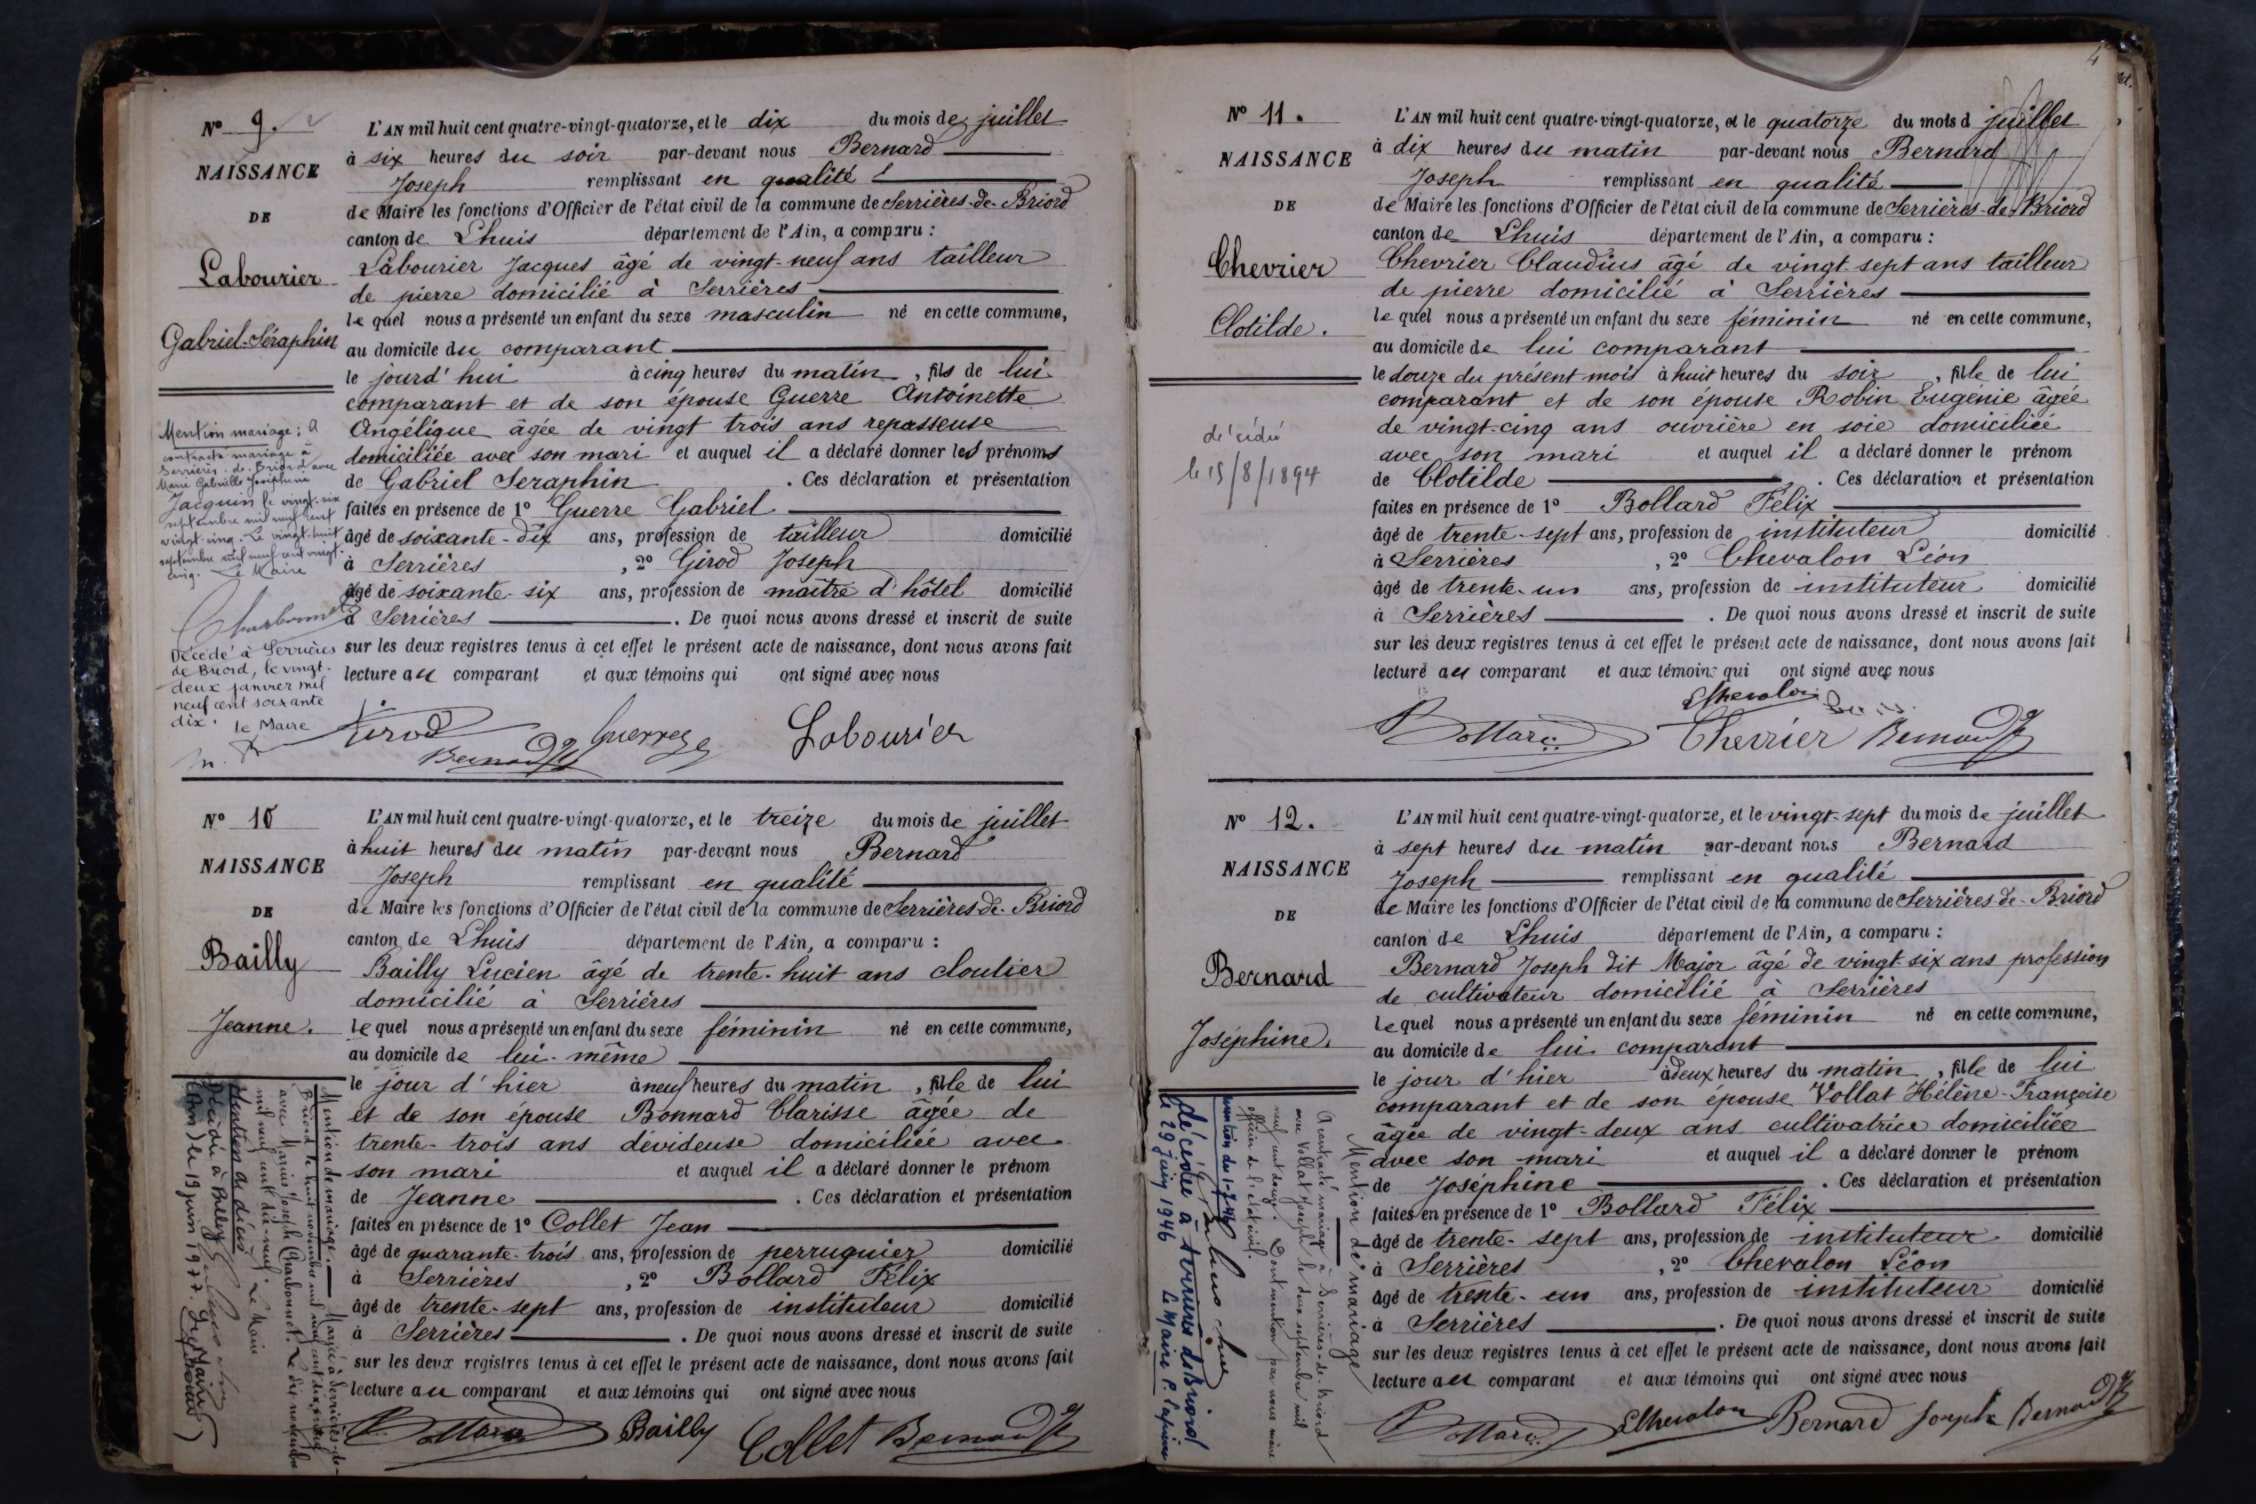 Nº 9.
NAISSANCE
DE
Labourier
Gabriel-Séraphin
Mention mariage : A
contracté mariage à
Serrières-de-Briord avec
Marie Gabrielle Joséphine
Jacquin le vingt-six
septembre mil neuf cent
vingt-cinq. Le vingt-huit
septembre mil neuf cent vingt-
cinq. Le Maire
Décédé à Serrières
de Briord, le vingt-
deux janvier mil
neuf cent soixante
dix. le Maire
L'AN mil huit cent quatre-vingt-quatorze, et le dix du mois de juillet
à six heures du soir par-devant nous Bernard
Joseph remplissant en qualité
de Maire les fonctions d'Officier de l'état civil de la commune de Serrières-de-Briord
canton de Lhuis département de l'Ain, a comparu :
Labourier Jacques âgé de vingt-neuf ans tailleur
de pierre domicilié à Serrières
lequel nous a présenté un enfant du sexe masculin né en cette commune,
au domicile du comparant
le jourd'hui à cinq heures du matin, fils de lui
comparant et de son épouse Guerre Antoinette
Angélique âgée de vingt trois ans repasseuse
domiciliée avec son mari et auquel il a déclaré donner les prénoms
de Gabriel Seraphin. Ces déclaration et présentation
faites en présence de 1º Guerre Gabriel
âgé de soixante-dix ans, profession de tailleur domicilié
à Serrières, 2º Girod Joseph
âgé de soixante-six ans, profession de maître d'hôtel domicilié
à Serrières. De quoi nous avons dressé et inscrit de suite
sur les deux registres tenus à cet effet le présent acte de naissance, dont nous avons fait
lecture au comparant et aux témoins qui ont signé avec nous
Girod Guerre Labourier
Bernard
Nº 10
NAISSANCE
DE
Bailly
Jeanne.
Mention de mariage. Mariée à Serrières-de-
Briord le huit novembre mil neuf cent dix-neuf
avec Marius Joseph Charbonnet. Le dix novembre
mil neuf cent dix-neuf. Le Maire
Mention de décès
Décédée à Belley
(Ain) le 19 juin 1977.
L'AN mil huit cent quatre-vingt-quatorze, et le treize du mois de juillet
à huit heures du matin par-devant nous Bernard
Joseph remplissant en qualité
de Maire les fonctions d'Officier de l'état civil de la commune de Serrières-de-Briord
canton de Lhuis département de l'Ain, a comparu :
Bailly Lucien âgé de trente-huit ans cloutier
domicilié à Serrières
lequel nous a présenté un enfant du sexe féminin né en cette commune,
au domicile de lui-même
le jour d'hier à neuf heures du matin, fille de lui
et de son épouse Bonnard Clarisse âgée de
trente-trois ans dévideuse domiciliée avec
son mari et auquel il a déclaré donner le prénom
de Jeanne. Ces déclaration et présentation
faites en présence de 1º Collet Jean
âgé de quarante-trois ans, profession de perruquier domicilié
à Serrières, 2º Bollard Félix
âgé de trente-sept ans, profession de instituteur domicilié
à Serrières. De quoi nous avons dressé et inscrit de suite
sur les deux registres tenus à cet effet le présent acte de naissance, dont nous avons fait
lecture au comparant et aux témoins qui ont signé avec nous
Bollard Bailly Collet Bernard
4
Nº 11.
NAISSANCE
DE
Chevrier
Clotilde.
décédé
le 15/8/1894
L'AN mil huit cent quatre-vingt-quatorze, et le quatorze du mois d juillet
à dix heures du matin par-devant nous Bernard
Joseph remplissant en qualité
de Maire les fonctions d'Officier de l'état civil de la commune de Serrières-de-Briord
canton de Lhuis département de l'Ain, a comparu :
Chevrier Claudius âgé de vingt sept ans tailleur
de pierre domicilié à Serrières
lequel nous a présenté un enfant du sexe féminin né en cette commune,
au domicile de lui comparant
le douze du présent mois à huit heures du soir, fille de lui
comparant et de son épouse Robin Eugénie âgée
de vingt-cinq ans ouvrière en soie domiciliée
avec son mari et auquel il a déclaré donner le prénom
de Clotilde. Ces déclaration et présentation
faites en présence de 1º Bollard Félix
âgé de trente-sept ans, profession de instituteur domicilié
à Serrières, 2º Chevalon Léon
âgé de trente-un ans, profession de instituteur domicilié
à Serrières. De quoi nous avons dressé et inscrit de suite
sur les deux registres tenus à cet effet le présent acte de naissance, dont nous avons fait
lecture au comparant et aux témoins qui ont signé avec nous
LChevalon
Bollard Chevrier Bernard
Nº 12.
NAISSANCE
DE
Bernard
Joséphine.
Mention de mariage
A contracté mariage à Serrières-de-Briord
avec Vollat Joseph le deux septembre mil
neuf cent douze. Dont mention par nous maire
officier de l'état civil.
mention du 1-7-46
décédée à Serrières de Briord
le 29 Juin 1946 Le Maire
L'AN mil huit cent quatre-vingt-quatorze, et le vingt-sept du mois de juillet
à sept heures du matin par-devant nous Bernard
Joseph remplissant en qualité
de Maire les fonctions d'Officier de l'état civil de la commune de Serrières-de-Briord
canton de Lhuis département de l'Ain, a comparu :
Bernard Joseph dit Major âgé de vingt-six ans profession
de cultivateur domicilié à Serrières
lequel nous a présenté un enfant du sexe féminin né en cette commune,
au domicile de lui comparant
le jour d'hier à deux heures du matin, fille de lui
comparant et de son épouse Vollat Hélène-Françoise
âgée de vingt-deux ans cultivatrice domiciliée
avec son mari et auquel il a déclaré donner le prénom
de Joséphine. Ces déclaration et présentation
faites en présence de 1º Bollard Félix
âgé de trente-sept ans, profession de instituteur domicilié
à Serrières, 2º Chevalon Léon
âgé de trente-un ans, profession de instituteur domicilié
à Serrières. De quoi nous avons dressé et inscrit de suite
sur les deux registres tenus à cet effet le présent acte de naissance, dont nous avons fait
lecture au comparant et aux témoins qui ont signé avec nous
Bollard LChevalon Bernard Joseph Bernard